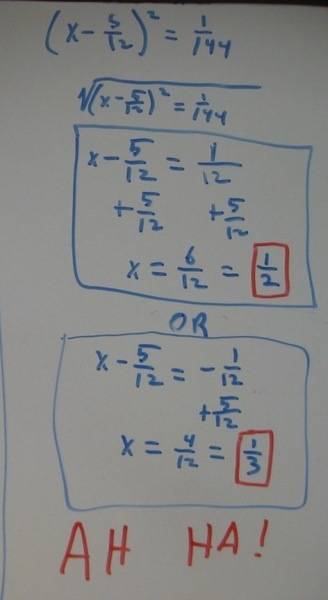 (x - 5/12)² = 1/144
√(x - 5/12)² = 1/144
x - 5/12 = 1/12
+ 5/12 + 5/12
x = 6/12 = 1/2
OR
x - 5/12 = - 1/12
+ 5/12
x = 4/12 = 1/3
AH HA!